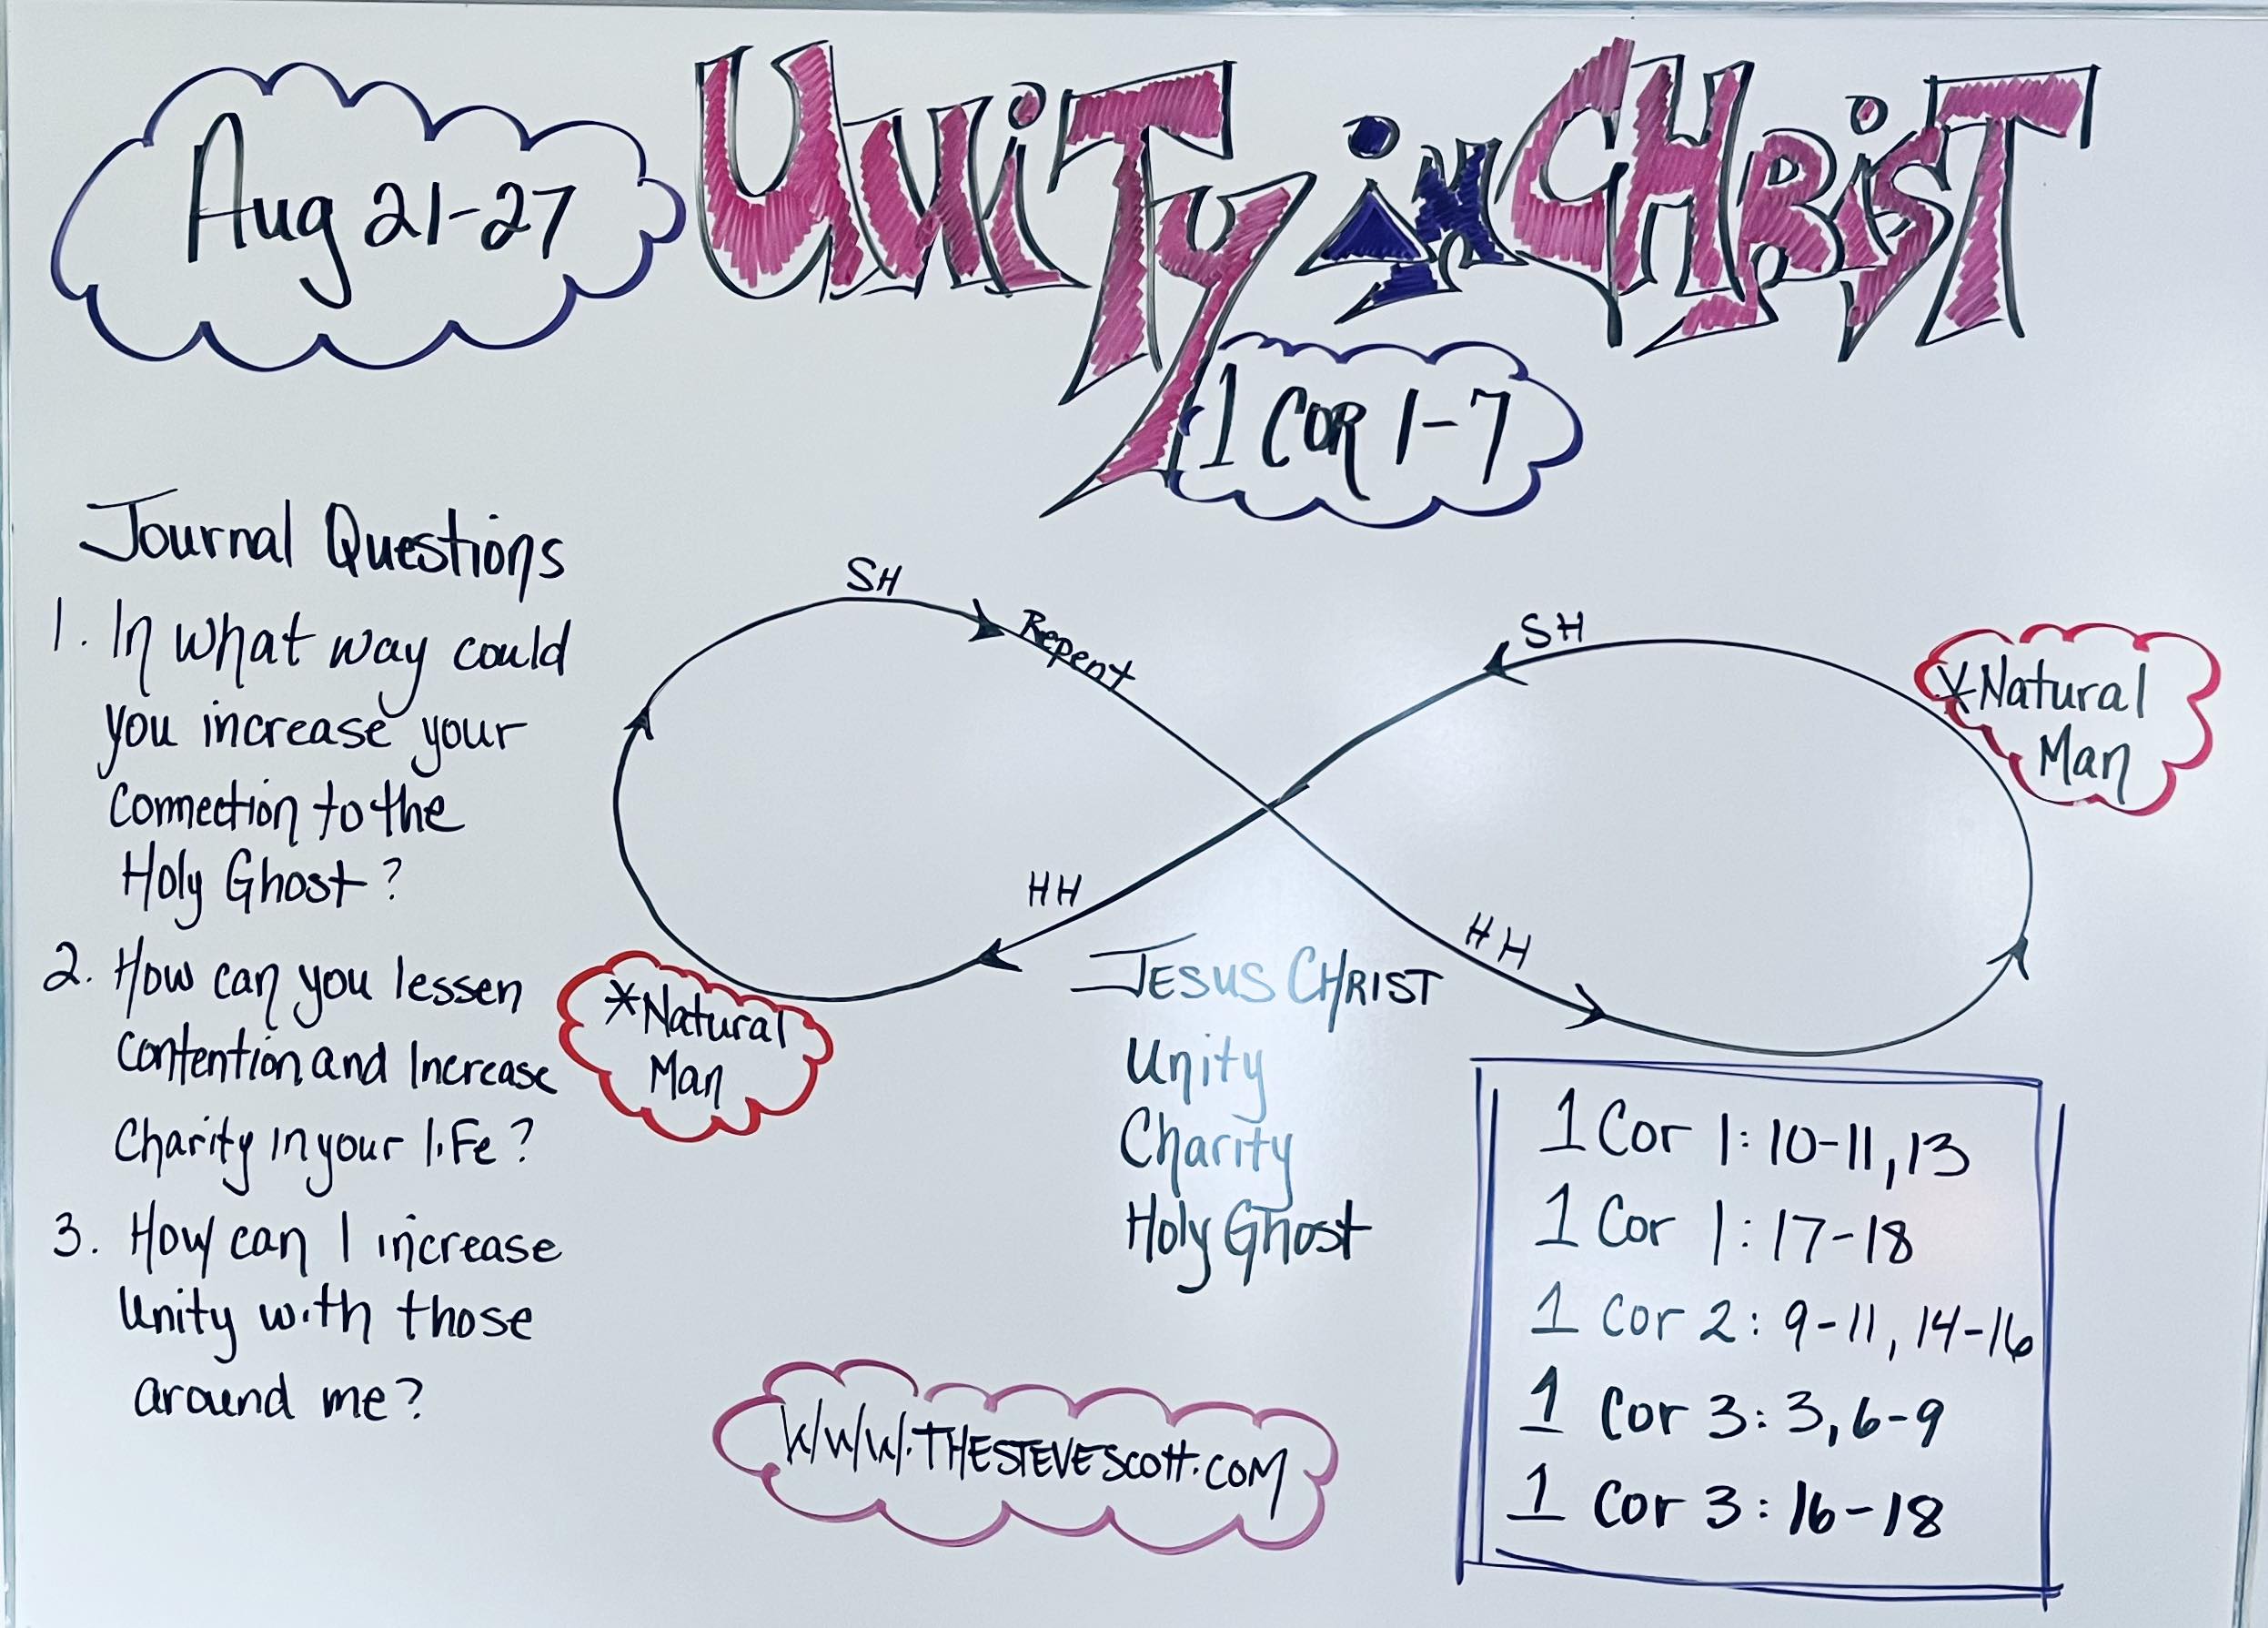 Aug 21-27
UNiTy iN CHRiST
1 COR 1-7
Journal Questions
1. In what way could
you increase your
connection to the
Holy Ghost?
2. How can you lessen
contention and Increase
Charity in your life?
3. How can I increase
Unity with those
around me?
SH
Repent
SH
*Natural
Man
HH
HH
*Natural
Man
JESUS CHRIST
Unity
Charity
Holy Ghost
1 Cor 1:10-11,13
1 Cor 1:17-18
1 Cor 2:9-11,14-16
1 Cor 3:3,6-9
1 Cor 3:16-18
WWW.THESTEVESCOTT.COM